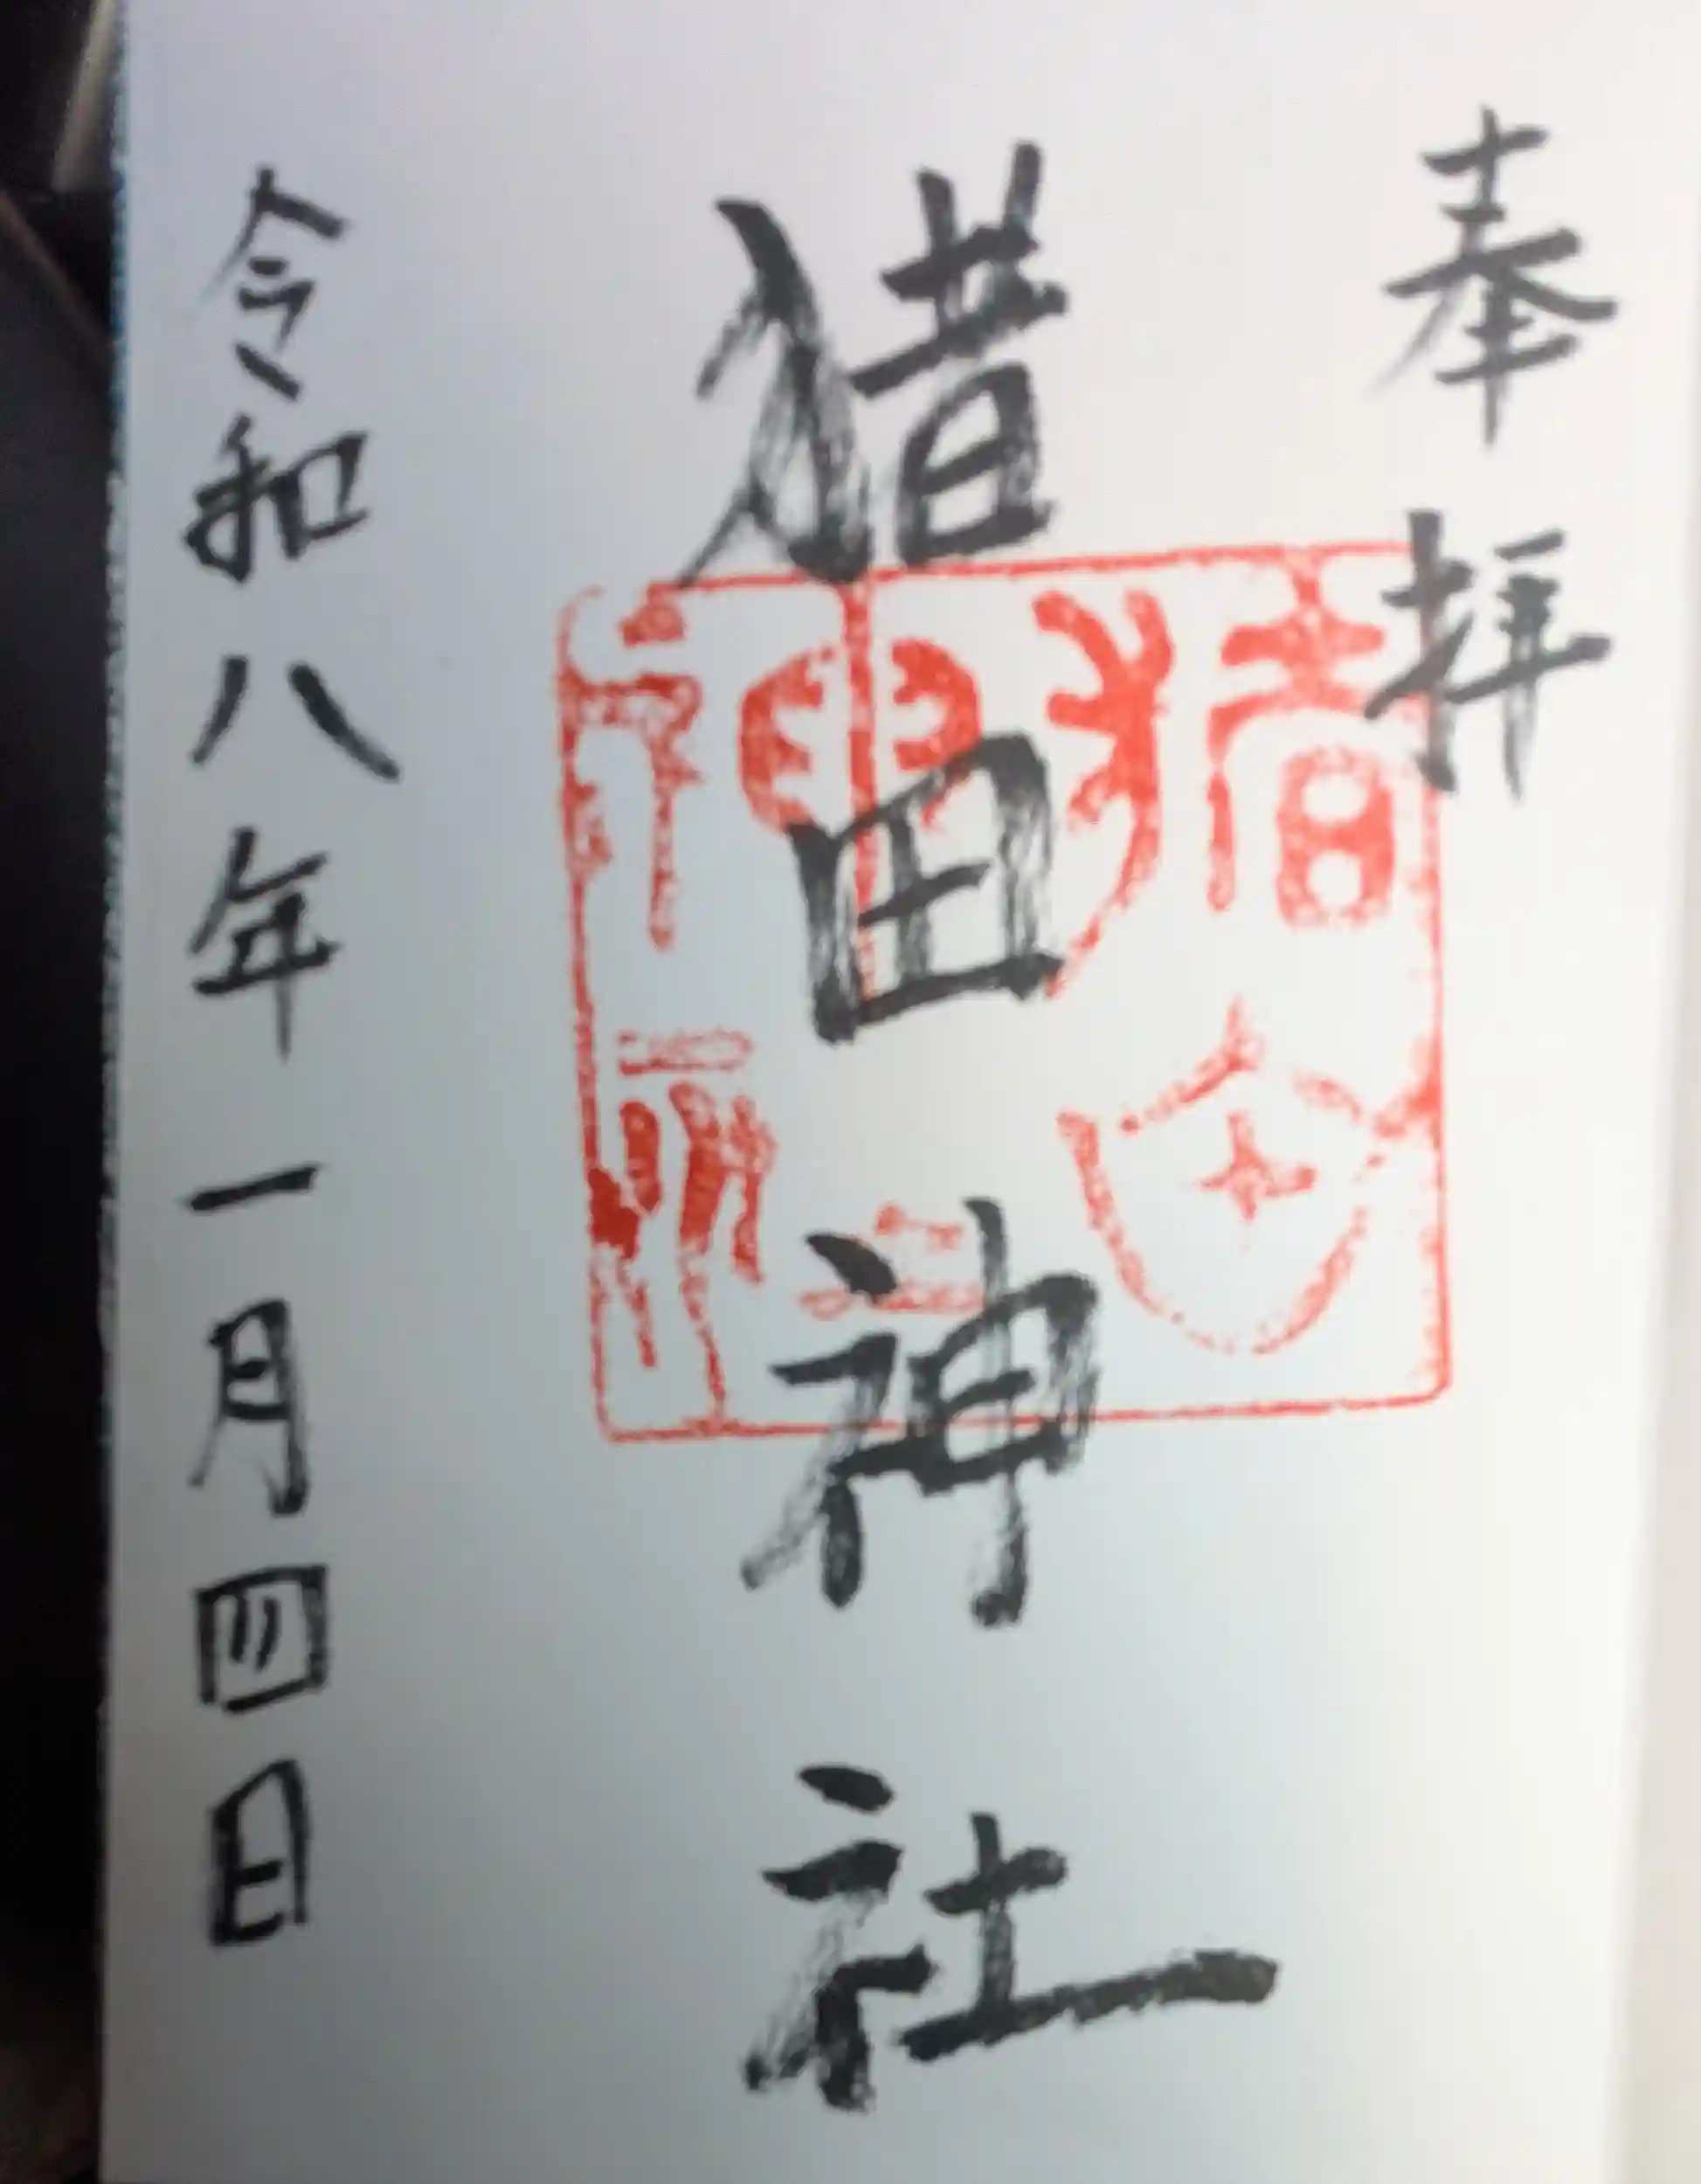 奉拝
猪田神社
猪田
神社
令和八年一月四日